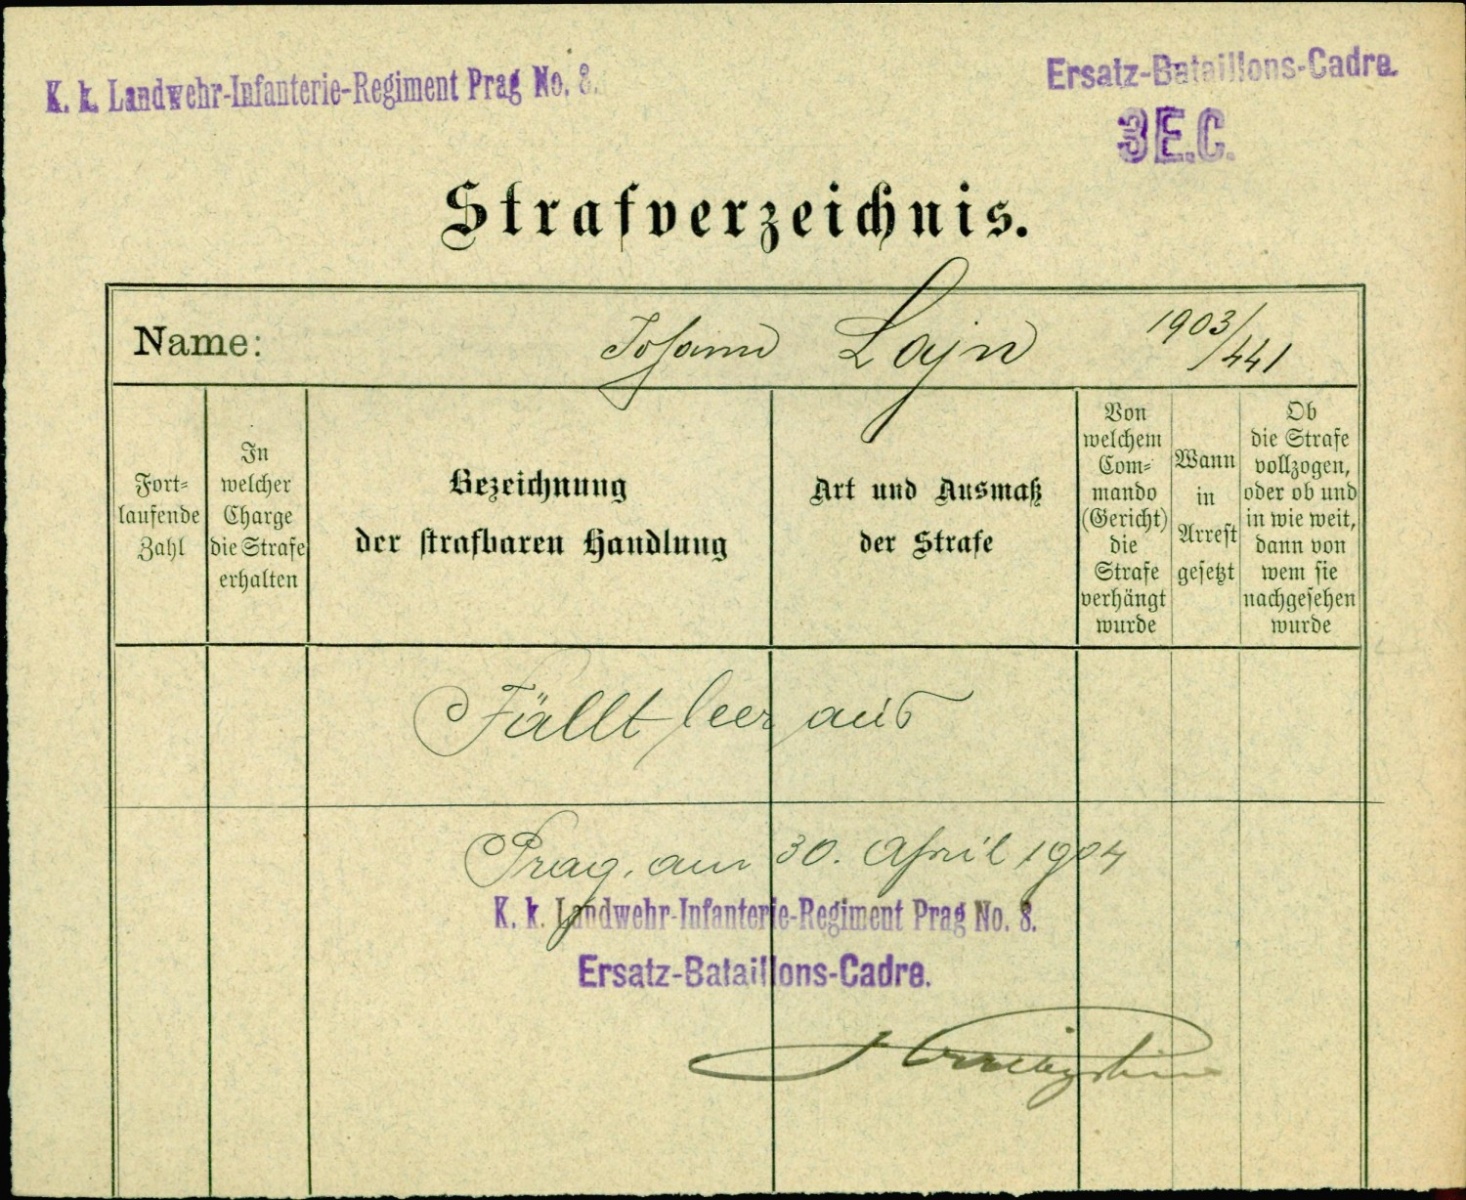 K. k. Landwehr-Infanterie-Regiment Prag No. 8.
Ersatz-Bataillons-Cadre.
3 E.C.
Strafverzeichnis.
Name: Johann Lajn 1903/441
Fort-
laufende
Zahl
In
welcher
Charge
die Strafe
erhalten
Bezeichnung
der strafbaren Handlung
Art und Ausmaß
der Strafe
Von
welchem
Com-
mando
(Gericht)
die
Strafe
verhängt
wurde
Wann
in
Arrest
gesetzt
Ob
die Strafe
vollzogen,
oder ob und
in wie weit,
dann von
wem sie
nachgesehen
wurde
Fällt leer aus
Prag, am 30. April 1904
K. k. Landwehr-Infanterie-Regiment Prag No. 8.
Ersatz-Bataillons-Cadre.